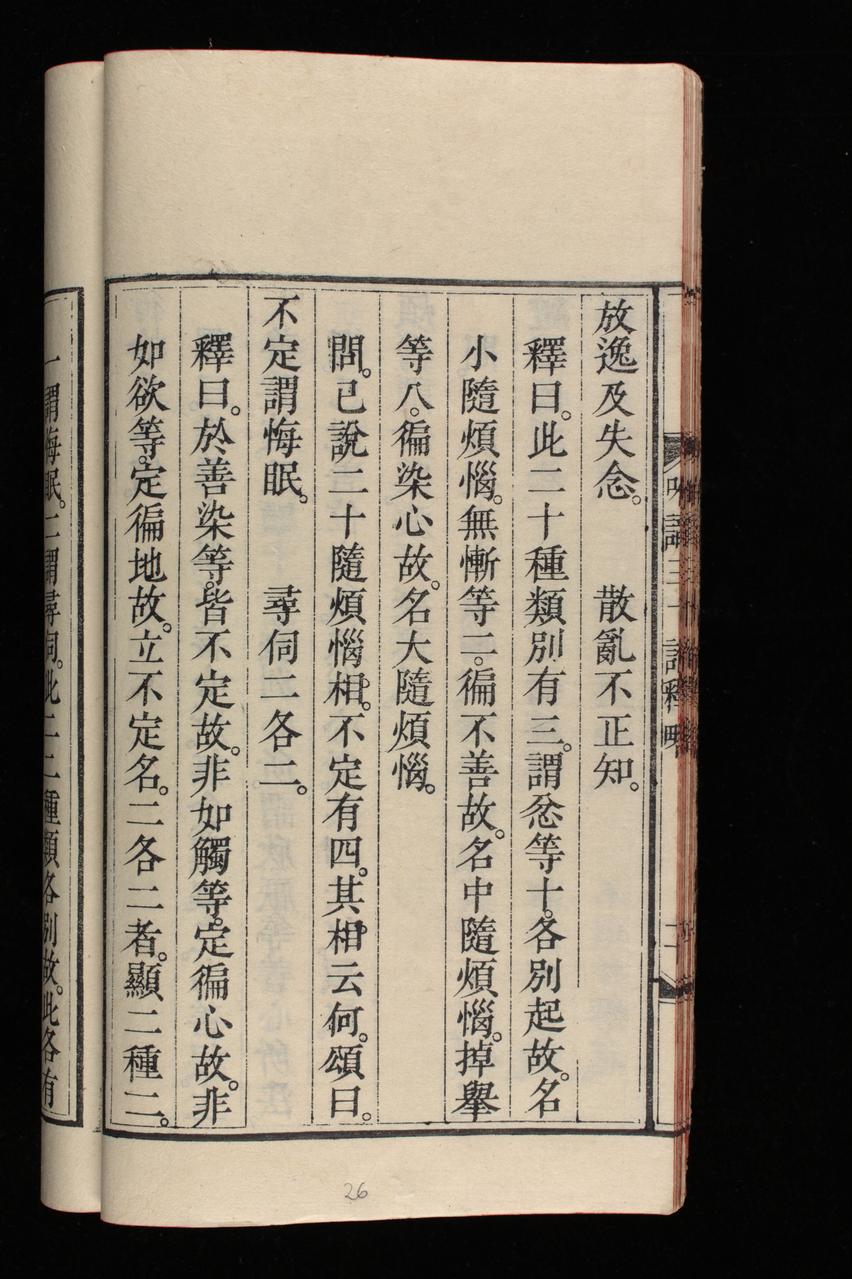 放逸及失念。　散亂不正知。
釋曰。此二十種類別有三。謂忿等十。各別起故。名
小隨煩惱。無慚等二。徧不善故。名中隨煩惱。掉舉
等八。徧染心故。名大隨煩惱。
問。已說二十隨煩惱相。不定有四。其相云何。頌曰。
不定謂悔眠。　尋伺二各二。
釋曰。於善染等。皆不定故。非如觸等。定徧心故。非
如欲等。定徧地故。立不定名。二各二者。顯二種二。
一謂悔眠。二謂尋伺。此二二種類各別故。此各有
26